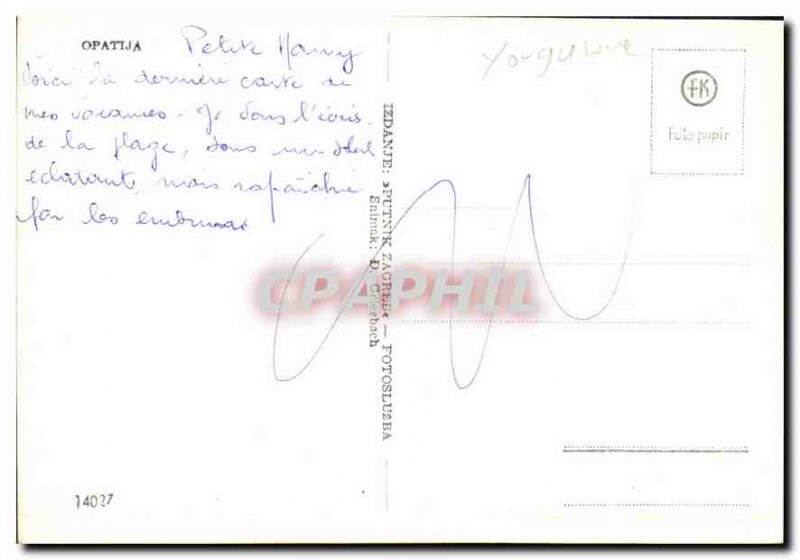 OPATIJA
Petite Mamy
Voici la dernière carte de
mes vacances. Je vous l'écris
de la plage, dans un soleil
eclatant, mais rafraichie
par les embruns
Yougoslavie
FK
Foto papir
IZDANJE: »PUTNIK ZAGREB« — FOTOSLUŽBA
Snimak: Đ. Griesbach
CPAPHIL
14027